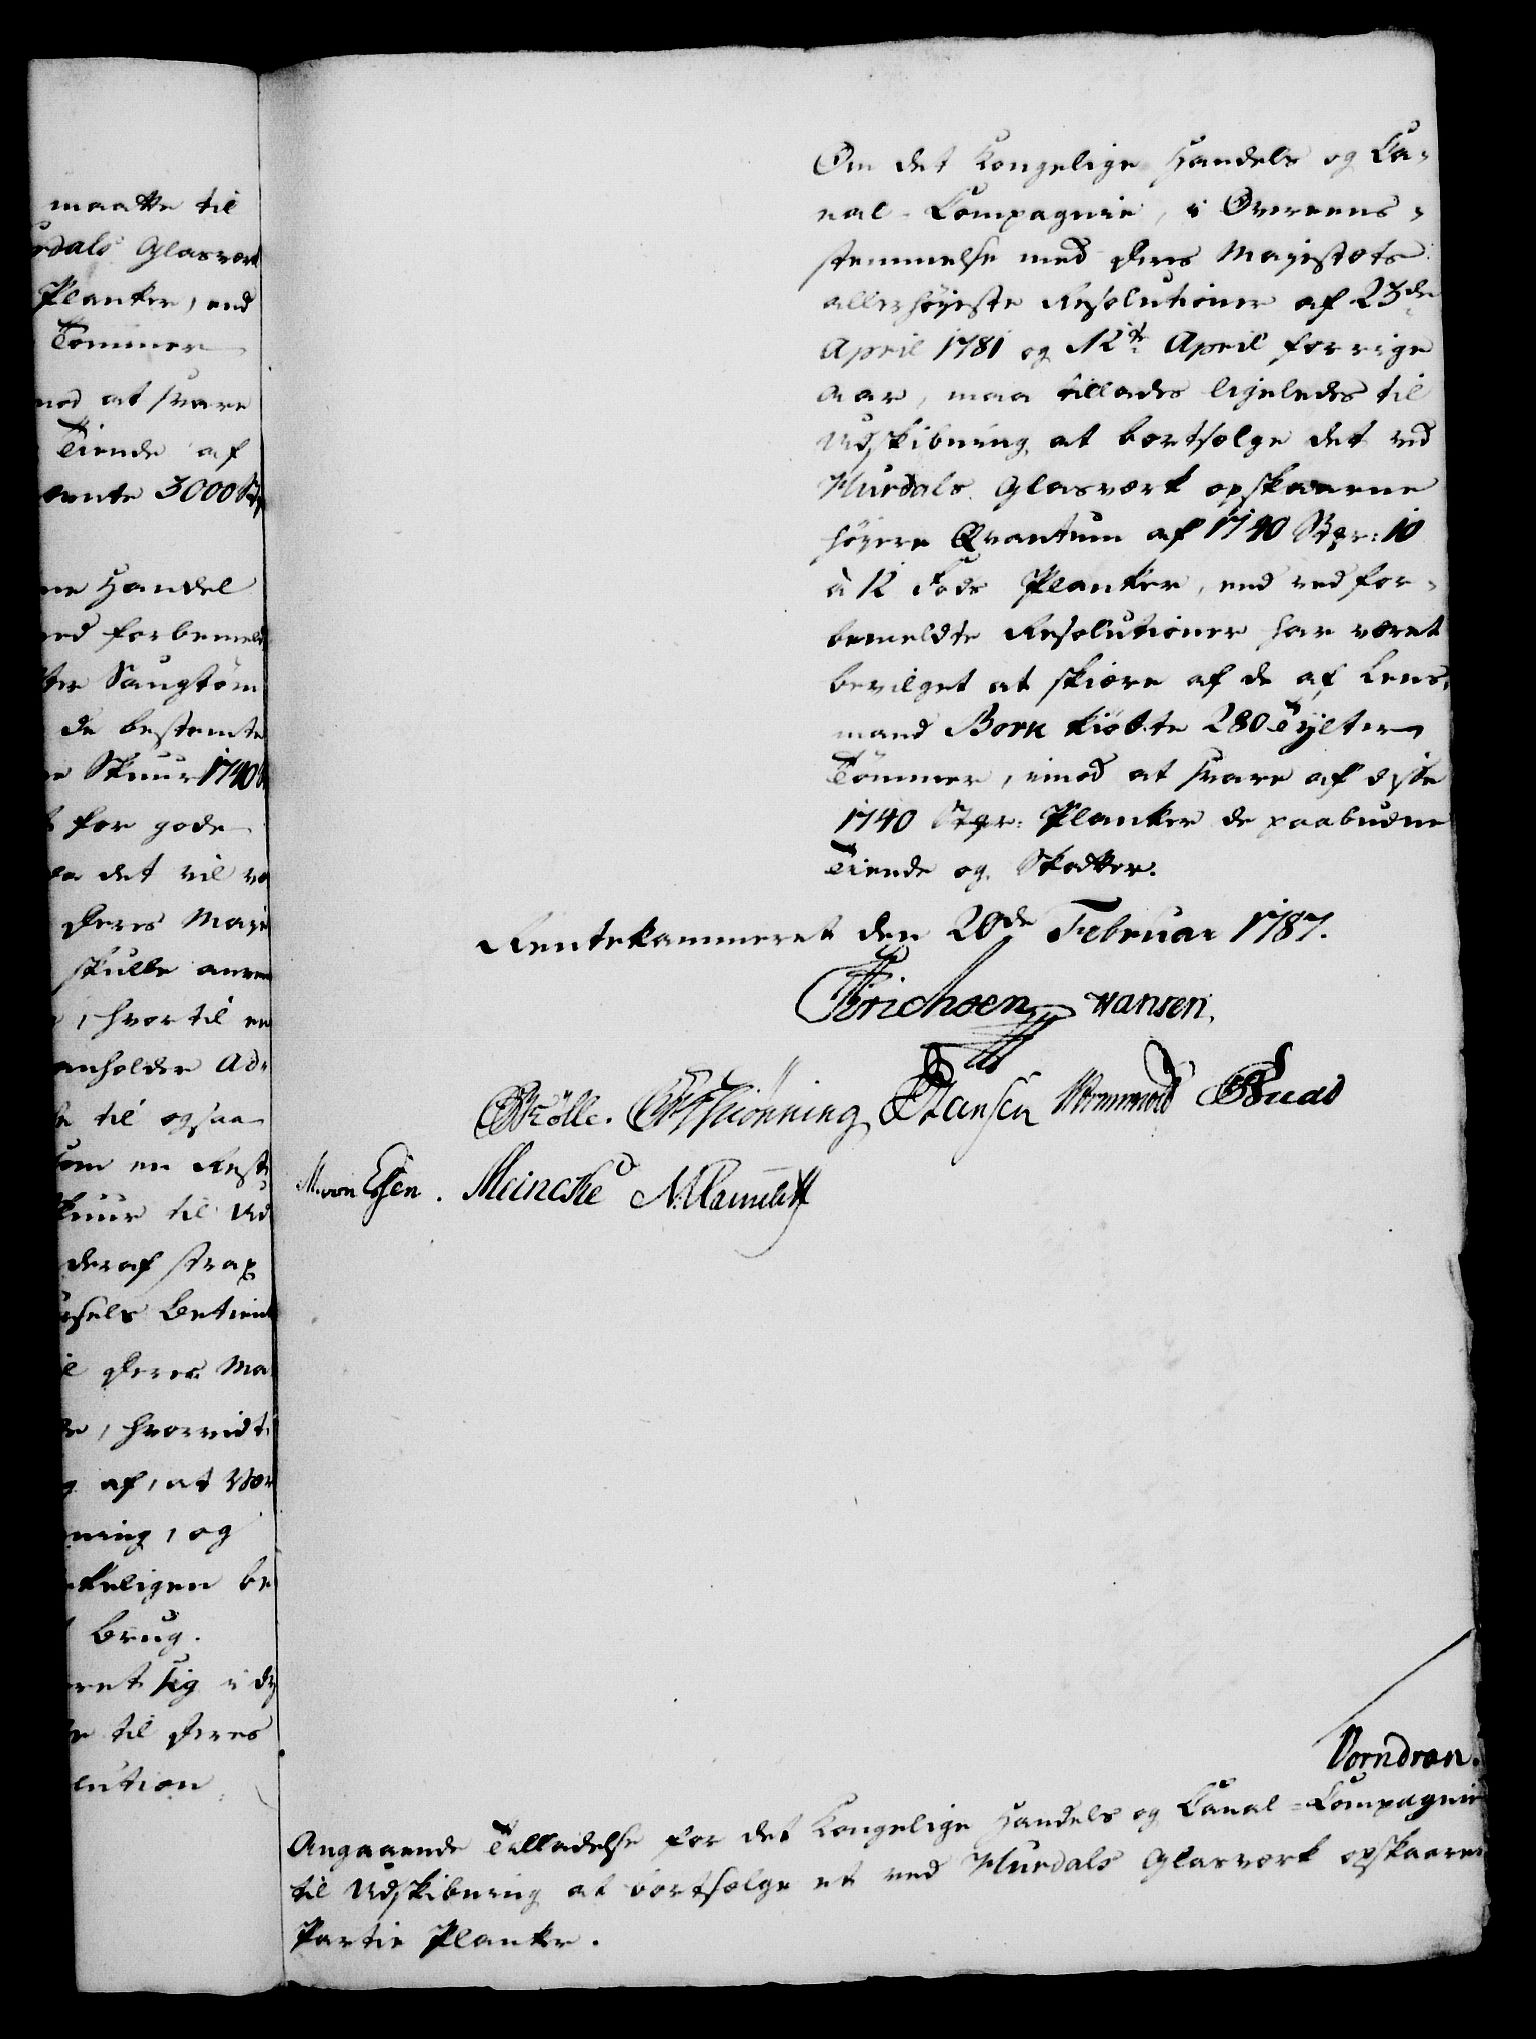 maatte til
rdals Glasværk
Planker, end
Tømmer
mod at svare
Tiende af
tvente 3000 St
ne Handel
ved forbemeld
ter Saugtøm
de bestemte
e Skuur 1740
t for gode
da det vil væ
Deres Maje
skulle anven
, hvortil en
anholder Ad-
be til ogsaa
som en Rest
Skuur til Ud
deraf strax
sels Betiend
il Deres Ma
de, hvorvidt
g af, at Vær
ning, og
keligen be
Brug.
ret sig i dy
e til Deres
lution
Om det Kongelige Handels og Ca-
nal-Compagnie, i Overeens-
stemmelse med Deres Majestæts
allerhøyeste Resolutioner af 23de
April 1781 og 12te April forrige
Aar, maa tillades ligeledes til
Udskibning at bortsælge det ved
Hurdals Glasværk opskaarne
høyere Qvantum af 1740 Stkr: 10
à 12 Fods Planker, end ved for-
bemeldte Resolutioner har været
bevilget at skiære af de af Lens-
mand Bork kiøbte 280 Tylter
Tømmer, imod at svare af disse
1740 Stkr: Planker de paabudne
Tiende og Skatter.
Rentekammeret den 20de Februar 1787.
Erichsen Hansen.
Krølle. Thiønning Hansen Wormwold Buad
M. von Essen. Meincke N. Rannelff
Vorndran.
Angaaende Tilladelse for det Kongelige Handels og Canal-Compagnie
til Udskibning at bortsælge et ved Hurdals Glasværk opskaaren
Partie Planker.